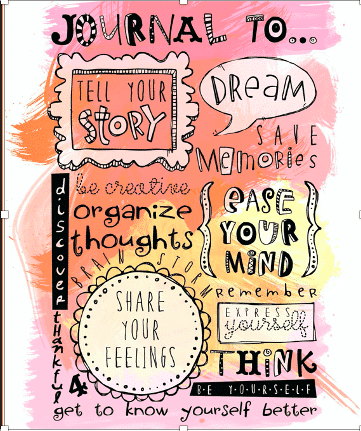 JOURNAL TO...
TELL YOUR
STORY
DREAM
SAVE
Memories
discover
be creative
organize
thoughts
EASE
YOUR
MIND
BRAIN STORM
remember
SHARE
YOUR
FEELINGS
EXPRESS
yourself
THINK
BE YOURSELF
thankful
4
get to know yourself better